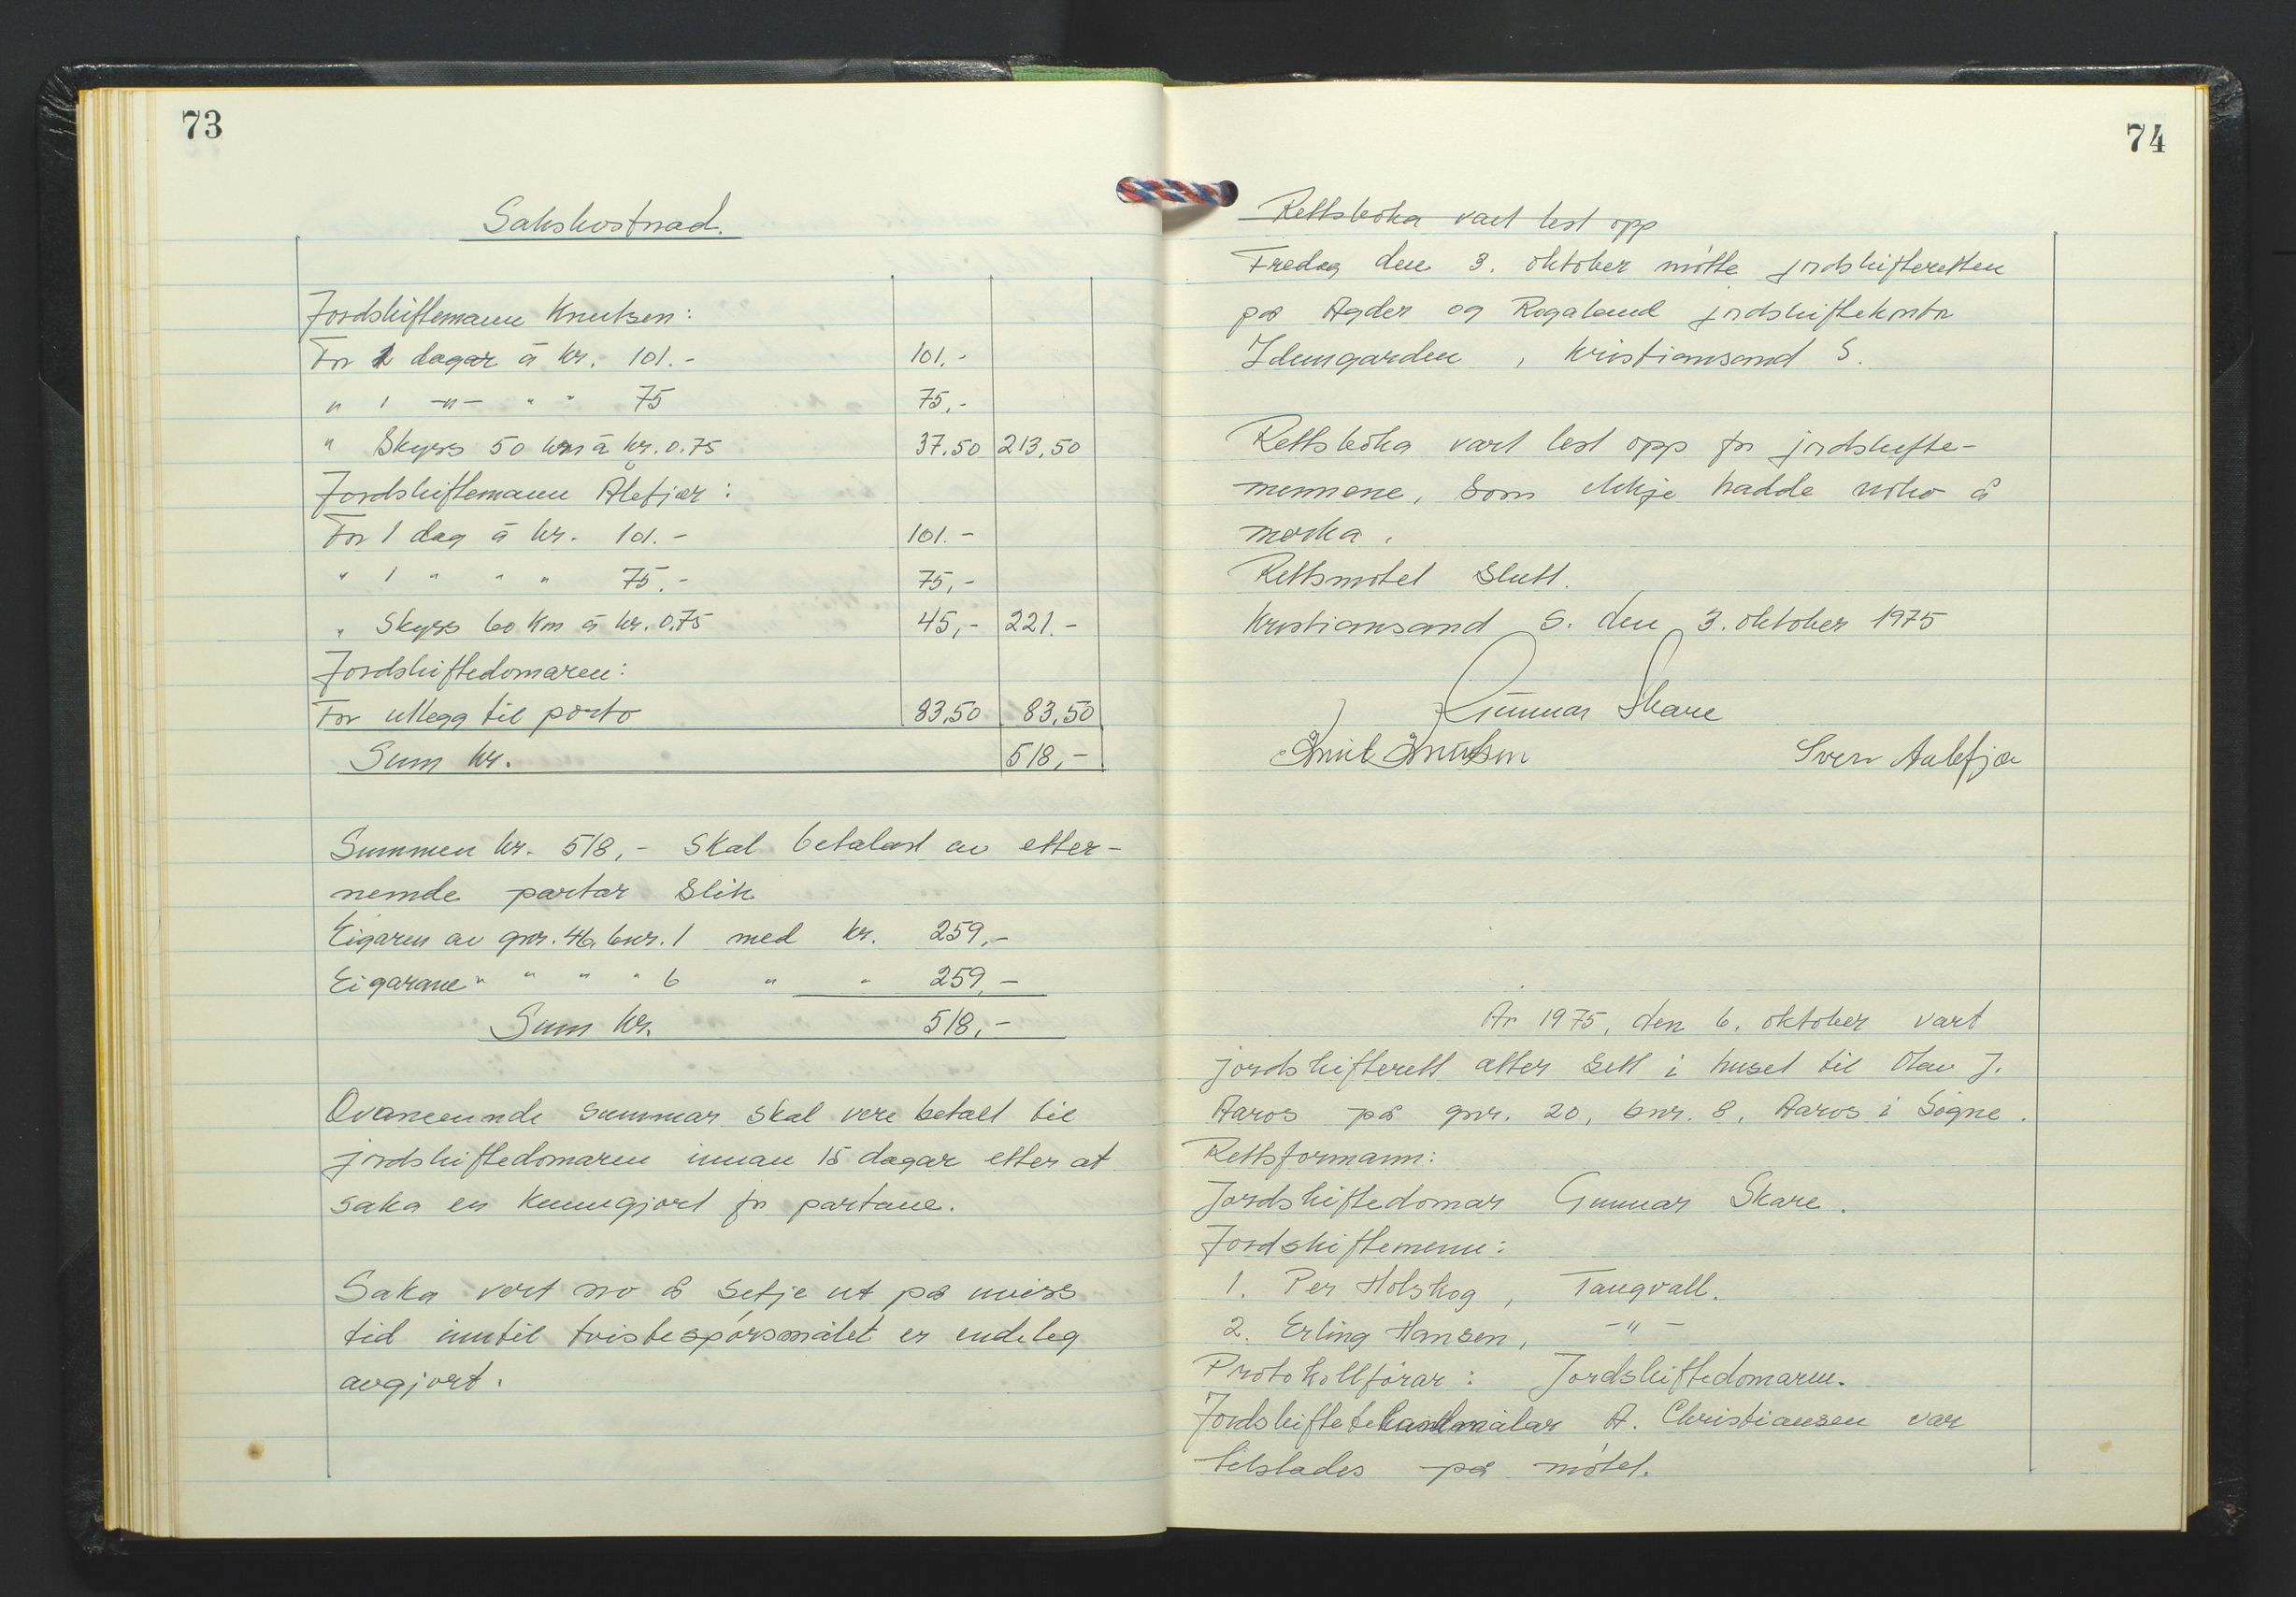 73
Sakskostnad.
Jordskiftemann Knutsen:
For 1 dagar à kr. 101.- 101.-
" 1 -"- " " 75 75,-
" Skyss 50 km à kr. 0.75 37.50 213,50
Jordskiftemann Ålefjær:
For 1 dag à kr. 101.- 101.-
" 1 " " " 75.- 75,-
" Skyss 60 km à kr. 0.75 45,- 221.-
Jordskiftedomaren:
For utlegg til porto 83,50 83,50
Sum kr. 518,-
Summen kr. 518,- skal betalast av etter-
nemde partar slik
Eigaren av gnr. 46, bnr. 1 med kr. 259,-
Eigarane " " " " 6 " " 259,-
Sum kr. 518,-
Ovanemnde summar skal vere betalt til
jordskiftedomaren innan 15 dagar etter at
saka er kunngjort for partane.
Saka vert no å setje ut på uviss
tid inntil tvistespørsmålet er endeleg
avgjort.
74
Rettsboka vart lest opp
Fredag den 3. oktober møtte jordskifteretten
på Agder og Rogaland jordskiftekontor
Idungarden, Kristiansand S.
Rettsboka vart lest opp for jordskifte-
mennene, som ikkje hadde noko å
merka.
Rettsmøtet slutt.
Kristiansand S. den 3. oktober 1975
Gunnar Skare
Knut Knutsen Sven Aalefjær
År 1975, den 6. oktober vart
jordskifterett atter sett i huset til Olav J.
Aaros på gnr. 20, bnr. 8, Aaros i Søgne.
Rettsformann:
Jordskiftedomar Gunnar Skare.
Jordskiftemenn:
1. Per Holskog, Tangvall.
2. Erling Hansen, -"-
Protokollførar: Jordskiftedomaren.
Jordskiftelandmålar A. Christiansen var
tilstades på møtet.